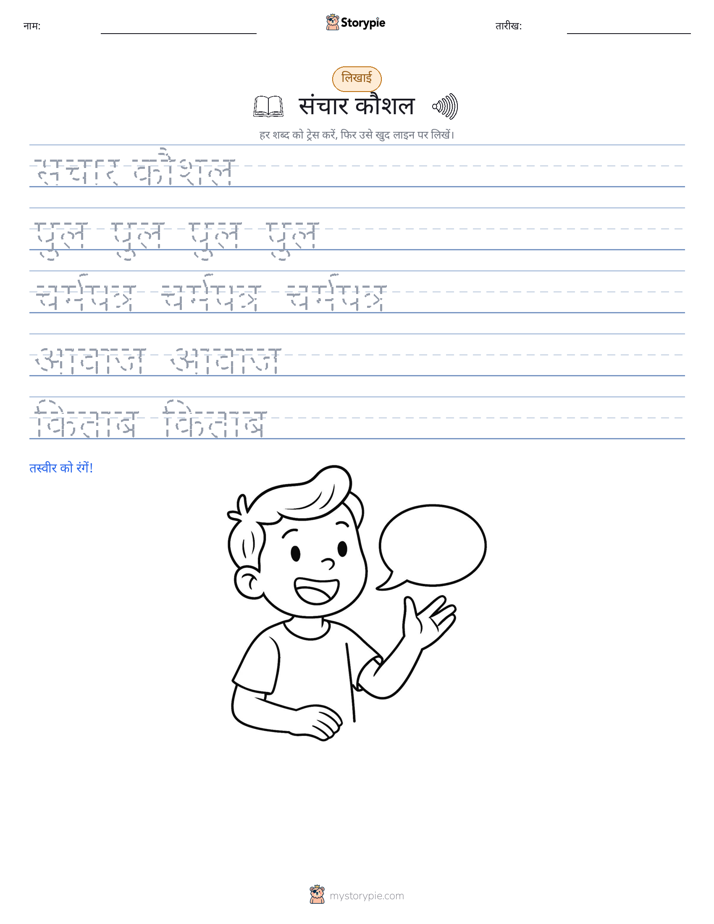 नाम:
Storypie
तारीख:
लिखाई
संचार कौशल
हर शब्द को ट्रेस करें, फिर उसे खुद लाइन पर लिखें।
संचार कौशल
पुल पुल पुल पुल
चर्मपत्र चर्मपत्र चर्मपत्र
आवाज आवाज
किताब किताब
तस्वीर को रंगें!
mystorypie.com